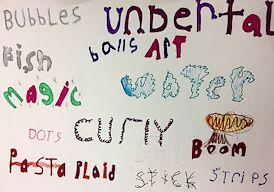 BUBBLES UNDERTAL
balls ART
Fish
magic WATER
DOTS CURLY
BOOM
Pasta Plaid STICK STRIPS